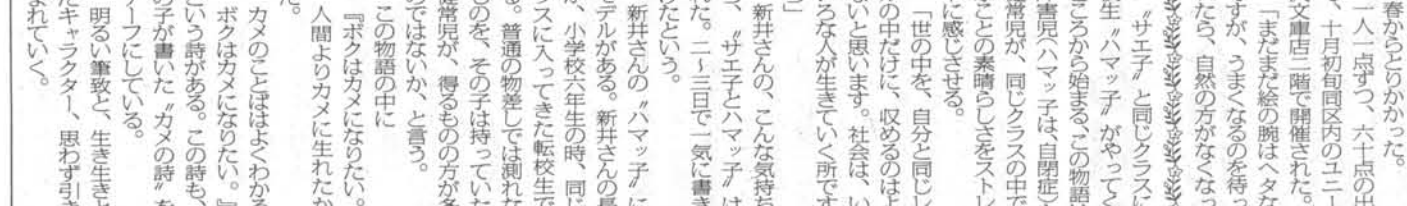 春からとりかかった。
一人一点ずつ、六十点の出
、十月初旬同区内のユニー
文庫店二階で開催された。
「まだまだ絵の腕はヘタな
すが、うまくなるのを待っ
たら、自然の方がなくなっ
〝サエ子〟と同じクラスに
生〝ハマッ子〟がやってく
ころから始まる、この物語は
害児(ハマッ子は、自閉症)と
常児が、同じクラスの中で
ことの素晴らしさをストレ
に感じさせる。
「世の中を、自分と同じレ
の中だけに、収めるのはよ
ないと思います。社会は、い
ろな人が生きていく所です
」
新井さんの、こんな気持ち
つ、〝サエ子とハマッ子〟は
れた。二〜三日で一気に書き
りたという。
新井さんの〝ハマッ子〟に
モデルがある。新井さんの長
が、小学校六年生の時、同じ
ラスに入ってきた転校生で
る。普通の物差しでは測れな
ものを、その子は持っていた
健常児が、得るものの方が多
のではないか、と言う。
この物語の中に
『ボクはカメになりたい。
人間よりカメに生れたか
た。
カメのことばはよくわかる
ボクはカメになりたい。』
という詩がある。この詩も、
の子が書いた〝カメの詩〟を
チーフにしている。
明るい筆致と、生き生きと
たキャラクター、思わず引き
まれていく。